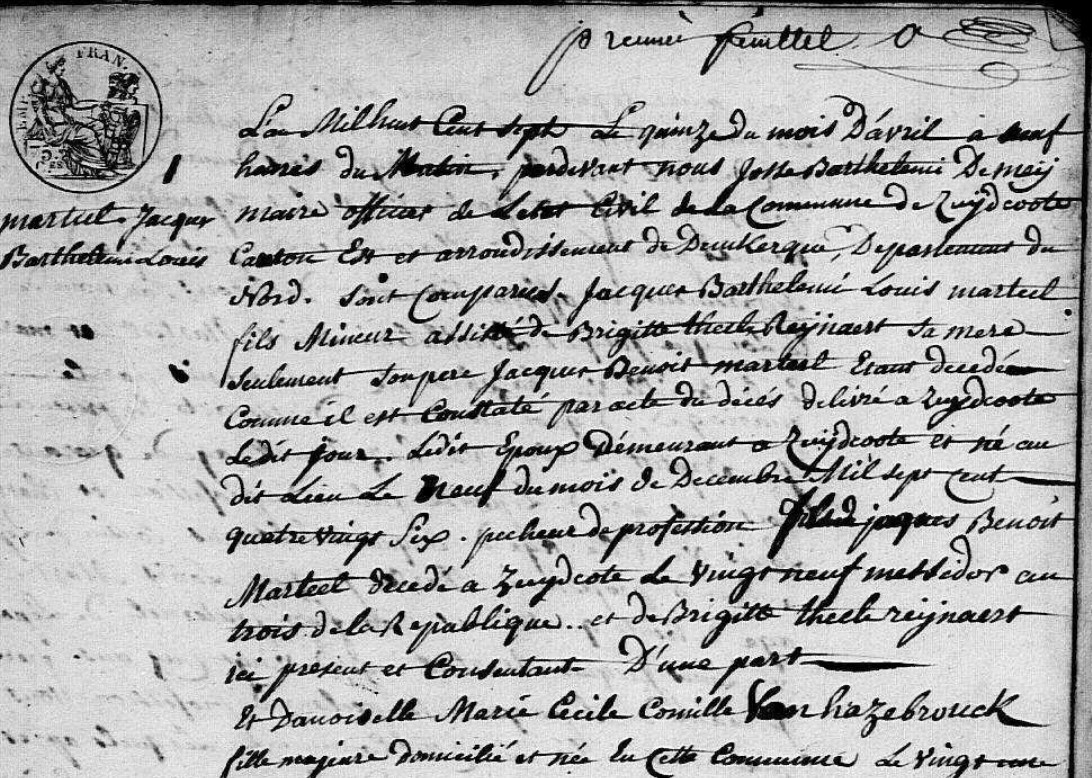 premier feuillet
EMP. FRAN.
L'an Milhuit Cent sept Le quinze du mois D'avril à neuf
heures du Matin, pardevant nous Josse Barthelemi Demeij
marteel Jacques
Barthelemi Louis
maire officier de Letat Civil de la Commune de Zuijdcoote
Canton Est et arrondissement de Dunkerque, Departement du
Nord. sont Comparus. Jacques Barthelemi Louis marteel
fils Mineur assisté de Brigitte thecle Reijnaert sa mere
seulement son pere Jacques Benoit marteel Etant decedé
Comme il est Constaté par acte du décés délivré a Zuijdcoote
Ledit jour. Ledit Epoux Démeurant a Zuijdcoote et né au
dit Lieu Le Neuf du mois de Decembre Mil sept cent
quatre vingt Six. pecheur de profession fils de jaques Benoit
Marteel decedé a Zuydcote Le Vingt neuf messidor an
trois de la Republique. et de Brigitte thecle reijnaert
ici present et Consentant D'une part
Et Damoiselle Marie Cecile Comille Van hazebrouck
fille majeure domicilié et née En Cette Commune Le Vingt une